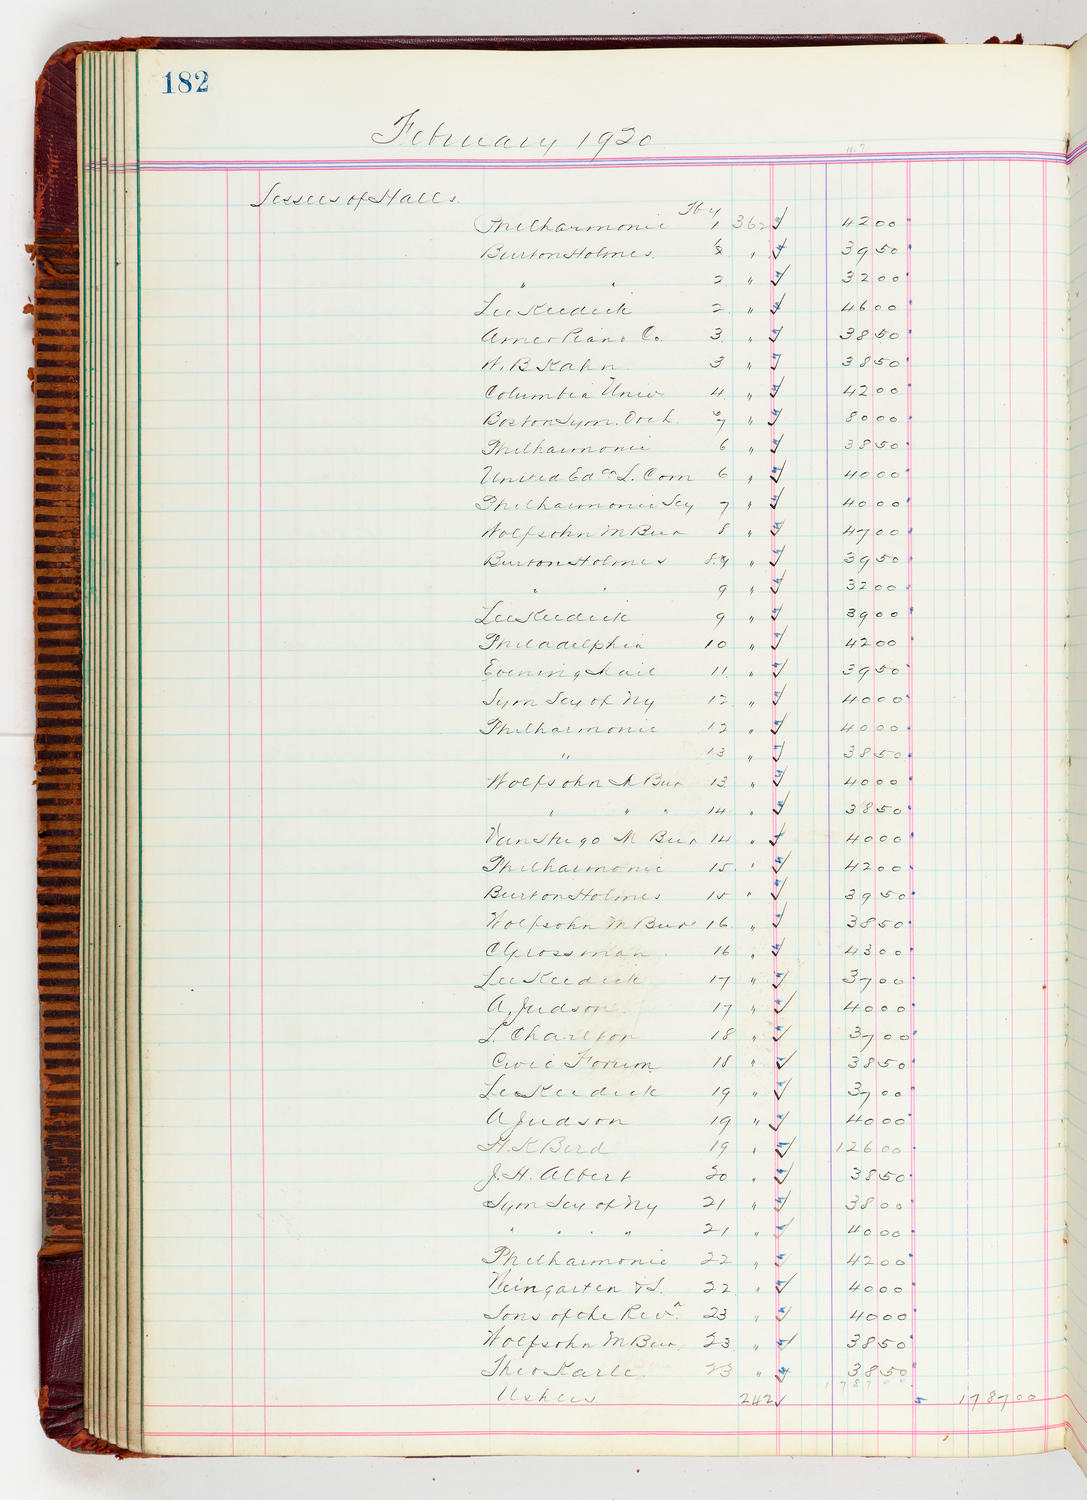 182
February 1920
Lessees of Halls
Philharmonic Feby 1 362 ✓ 4200
Burton Holmes " ✓ 3950
" " 2 " ✓ 3200
Lee Keedick 2 " ✓ 4600
Amer Piano Co. 3 " ✓ 3850
W. B Kahn 3 " ✓ 3850
Columbia Univ 4 " ✓ 4200
Boston Sym. Orch. " ✓ 8000
Philharmonic 6 " ✓ 3850
United Ed L. Com 6 " ✓ 4000
Philharmonic Scy 7 " ✓ 4000
Wolfsohn M Bur 8 " ✓ 4700
Burton Holmes 8 " ✓ 3950
" " 9 " ✓ 3200
Lee Keedick 9 " ✓ 3900
Philadelphia 10 " ✓ 4200
Evening Mail 11 " ✓ 3950
Sym Scy of Ny 12 " ✓ 4000
Philharmonic 12 " ✓ 4000
" 13 " ✓ 3850
Wolfsohn M Bur 13 " ✓ 4000
" " " 14 " ✓ 3850
Van Hugo M Bur 14 " ✓ 4000
Philharmonic 15 " ✓ 4200
Burton Holmes 15 " ✓ 3950
Wolfsohn M Bur 16 " ✓ 3850
C Grossman 16 " ✓ 4300
Lee Keedick 17 " ✓ 3700
A. Judson 17 " ✓ 4000
L. Charlton 18 " ✓ 3700
Civic Forum 18 " ✓ 3850
Lee Keedick 19 " ✓ 3700
A Judson 19 " ✓ 4000
H. K Bird 19 " ✓ 12600
J. H. Albert 20 " ✓ 3850
Sym Scy of Ny 21 " ✓ 3800
" " " " 21 " ✓ 4000
Philharmonic 22 " ✓ 4200
Weingarten & S. 22 " ✓ 4000
Sons of the Revn. 23 " ✓ 4000
Wolfsohn M Bur 23 " ✓ 3850
Theo Karle 23 " ✓ 3850
Ushers 242 ✓ 178700